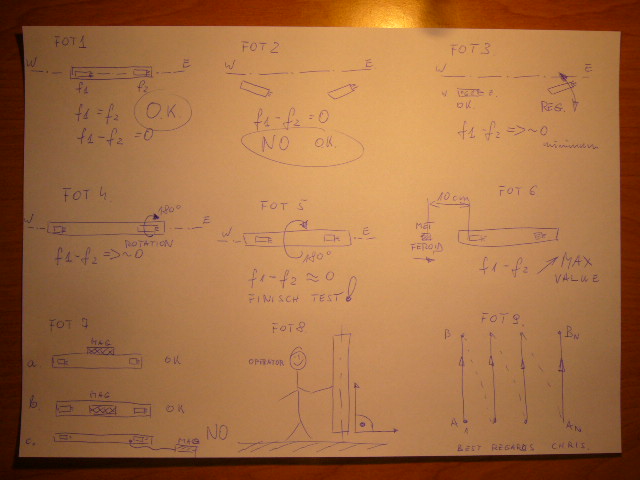 FOT1
W E
f1 f2
f1 = f2
f1 - f2 = 0
O.K.
FOT 2
W E
f1 - f2 = 0
NO O.K.
FOT 3
W E
OK
REG.
f1 - f2 => ~0
minimum
FOT 4
180°
W E
ROTATION
f1 - f2 => ~0
FOT 5
W E
180°
f1 - f2 ≈ 0
FINISCH TEST!
FOT 6
10 cm
f1 - f2 MAX
VALUE
FOT 7
MAG
a. OK
MAG
b. OK
c. MAG NO
FOT 8
OPERATOR
FOT 9.
B BN
A AN
BEST REGARDS CHRIS.